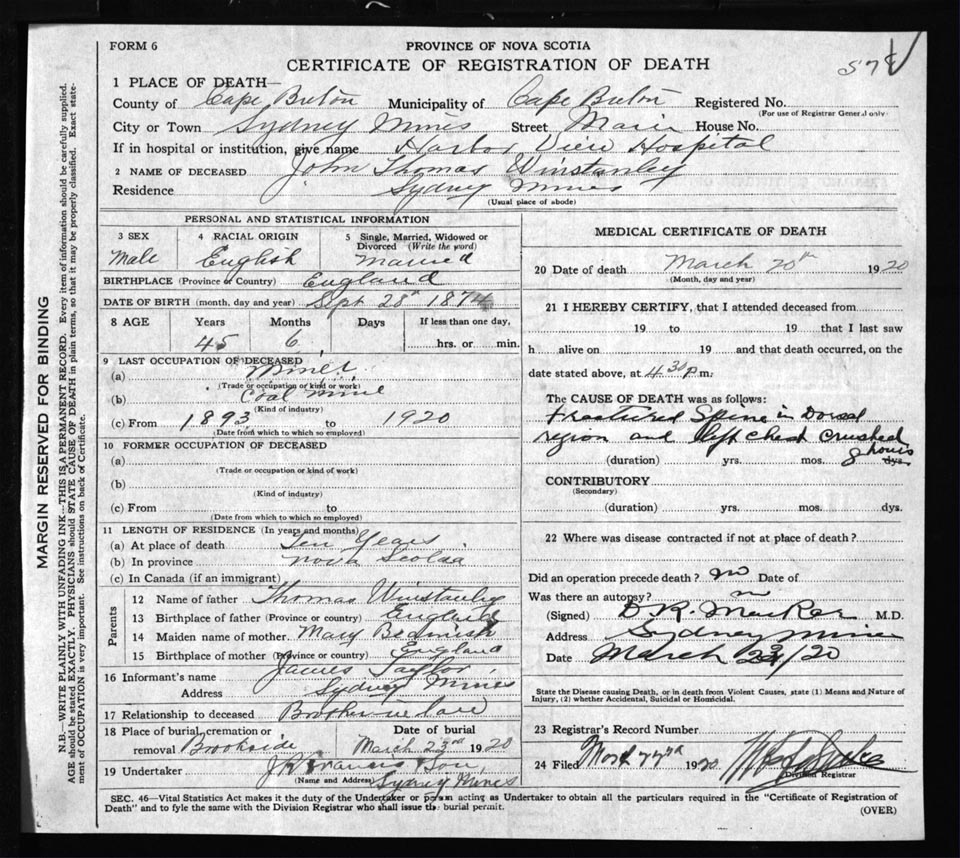 FORM 6
PROVINCE OF NOVA SCOTIA
CERTIFICATE OF REGISTRATION OF DEATH
1 PLACE OF DEATH—
County of Cape Breton Municipality of Cape Breton Registered No.
(For use of Registrar General only)
City or Town Sydney Mines Street Main House No.
If in hospital or institution, give name Harbor View Hospital
2 NAME OF DECEASED John Thomas Winstanley
Residence Sydney Mines
(Usual place of abode)
PERSONAL AND STATISTICAL INFORMATION
3 SEX 4 RACIAL ORIGIN 5 Single, Married, Widowed or Divorced (Write the word)
Male English Married
BIRTHPLACE (Province or Country) England
DATE OF BIRTH (month, day and year) Sept 28th 1874
8 AGE Years Months Days If less than one day,
45 6 hrs. or min.
9 LAST OCCUPATION OF DECEASED
(a) Miner
(Trade or occupation or kind or work)
(b) Coal Mine
(Kind of industry)
(c) From 1893 to 1920
(Date from which to which so employed)
10 FORMER OCCUPATION OF DECEASED
(a)
(Trade or occupation or kind of work)
(b)
(Kind of industry)
(c) From to
(Date from which to which so employed)
11 LENGTH OF RESIDENCE (In years and months)
(a) At place of death Ten Years
(b) In province Nova Scotia
(c) In Canada (if an immigrant)
Parents
12 Name of father Thomas Winstanley
13 Birthplace of father (Province or country) England
14 Maiden name of mother Mary
15 Birthplace of mother (Province or country) England
16 Informant's name James Taylor
Address Sydney Mines
17 Relationship to deceased
18 Place of burial, cremation or removal Brookside Date of burial March 23rd 1920
19 Undertaker
(Name and Address) Sydney Mines
MEDICAL CERTIFICATE OF DEATH
20 Date of death March 20th 1920
(Month, day and year)
21 I HEREBY CERTIFY, that I attended deceased from
19 to 19 that I last saw
h alive on 19 and that death occurred, on the
date stated above, at 4.30 p.m.
The CAUSE OF DEATH was as follows:
Fractured Spine in Dorsal
region and left chest crushed
(duration) yrs. mos. 8 hours dys.
CONTRIBUTORY
(Secondary)
(duration) yrs. mos. dys.
22 Where was disease contracted if not at place of death?
Did an operation precede death? no Date of
Was there an autopsy? no
(Signed) M.D.
Address Sydney Mines
Date March /20
State the Disease causing Death, or in death from Violent Causes, state (1) Means and Nature of
Injury, (2) whether Accidental, Suicidal or Homicidal.
23 Registrar's Record Number
24 Filed 1920
Division Registrar
SEC. 46—Vital Statistics Act makes it the duty of the Undertaker or person acting as Undertaker to obtain all the particulars required in the "Certificate of Registration of
Death" and to fyle the same with the Division Registrar who shall issue the burial permit.
(OVER)
MARGIN RESERVED FOR BINDING
N.B.—WRITE PLAINLY WITH UNFADING INK—THIS IS A PERMANENT RECORD. Every item of information should be carefully supplied.
AGE should be stated EXACTLY. PHYSICIANS should STATE CAUSE OF DEATH in plain terms, so that it may be properly classified. Exact state-
ment of OCCUPATION is very important. See instructions on back of Certificate.